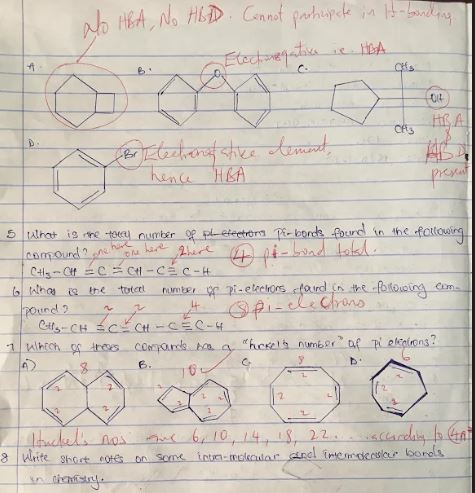 No HBA, No HBD. Cannot participate in H-bonding
Electronegative ie. HBA
A.
B.
O
C.
CH₃
OH
CH₃
HBA
&
HBD
present
D.
Br
Electronegative element,
hence HBA
5 What is the total number of pi-electrons Pi-bonds found in the following
compound? one here one here 2 here ④ pi-bond total.
CH₃-CH=C=CH-C≡C-H
6 What is the total number of pi-electrons found in the following com-
pound? 2 2 4 ⑧ pi-electrons
CH₃-CH=C=CH-C≡C-H
7 Which of these compounds has a "huckel's number" of pi electrons?
A) 8 B. 10 C. 8 D. 6
2 2 2 2
2 2 2 2
2 2 2 2
Huckel's nos are 6, 10, 14, 18, 22... according to
8 Write short notes on some intra-molecular and intermolecular bonds
in chemistry.